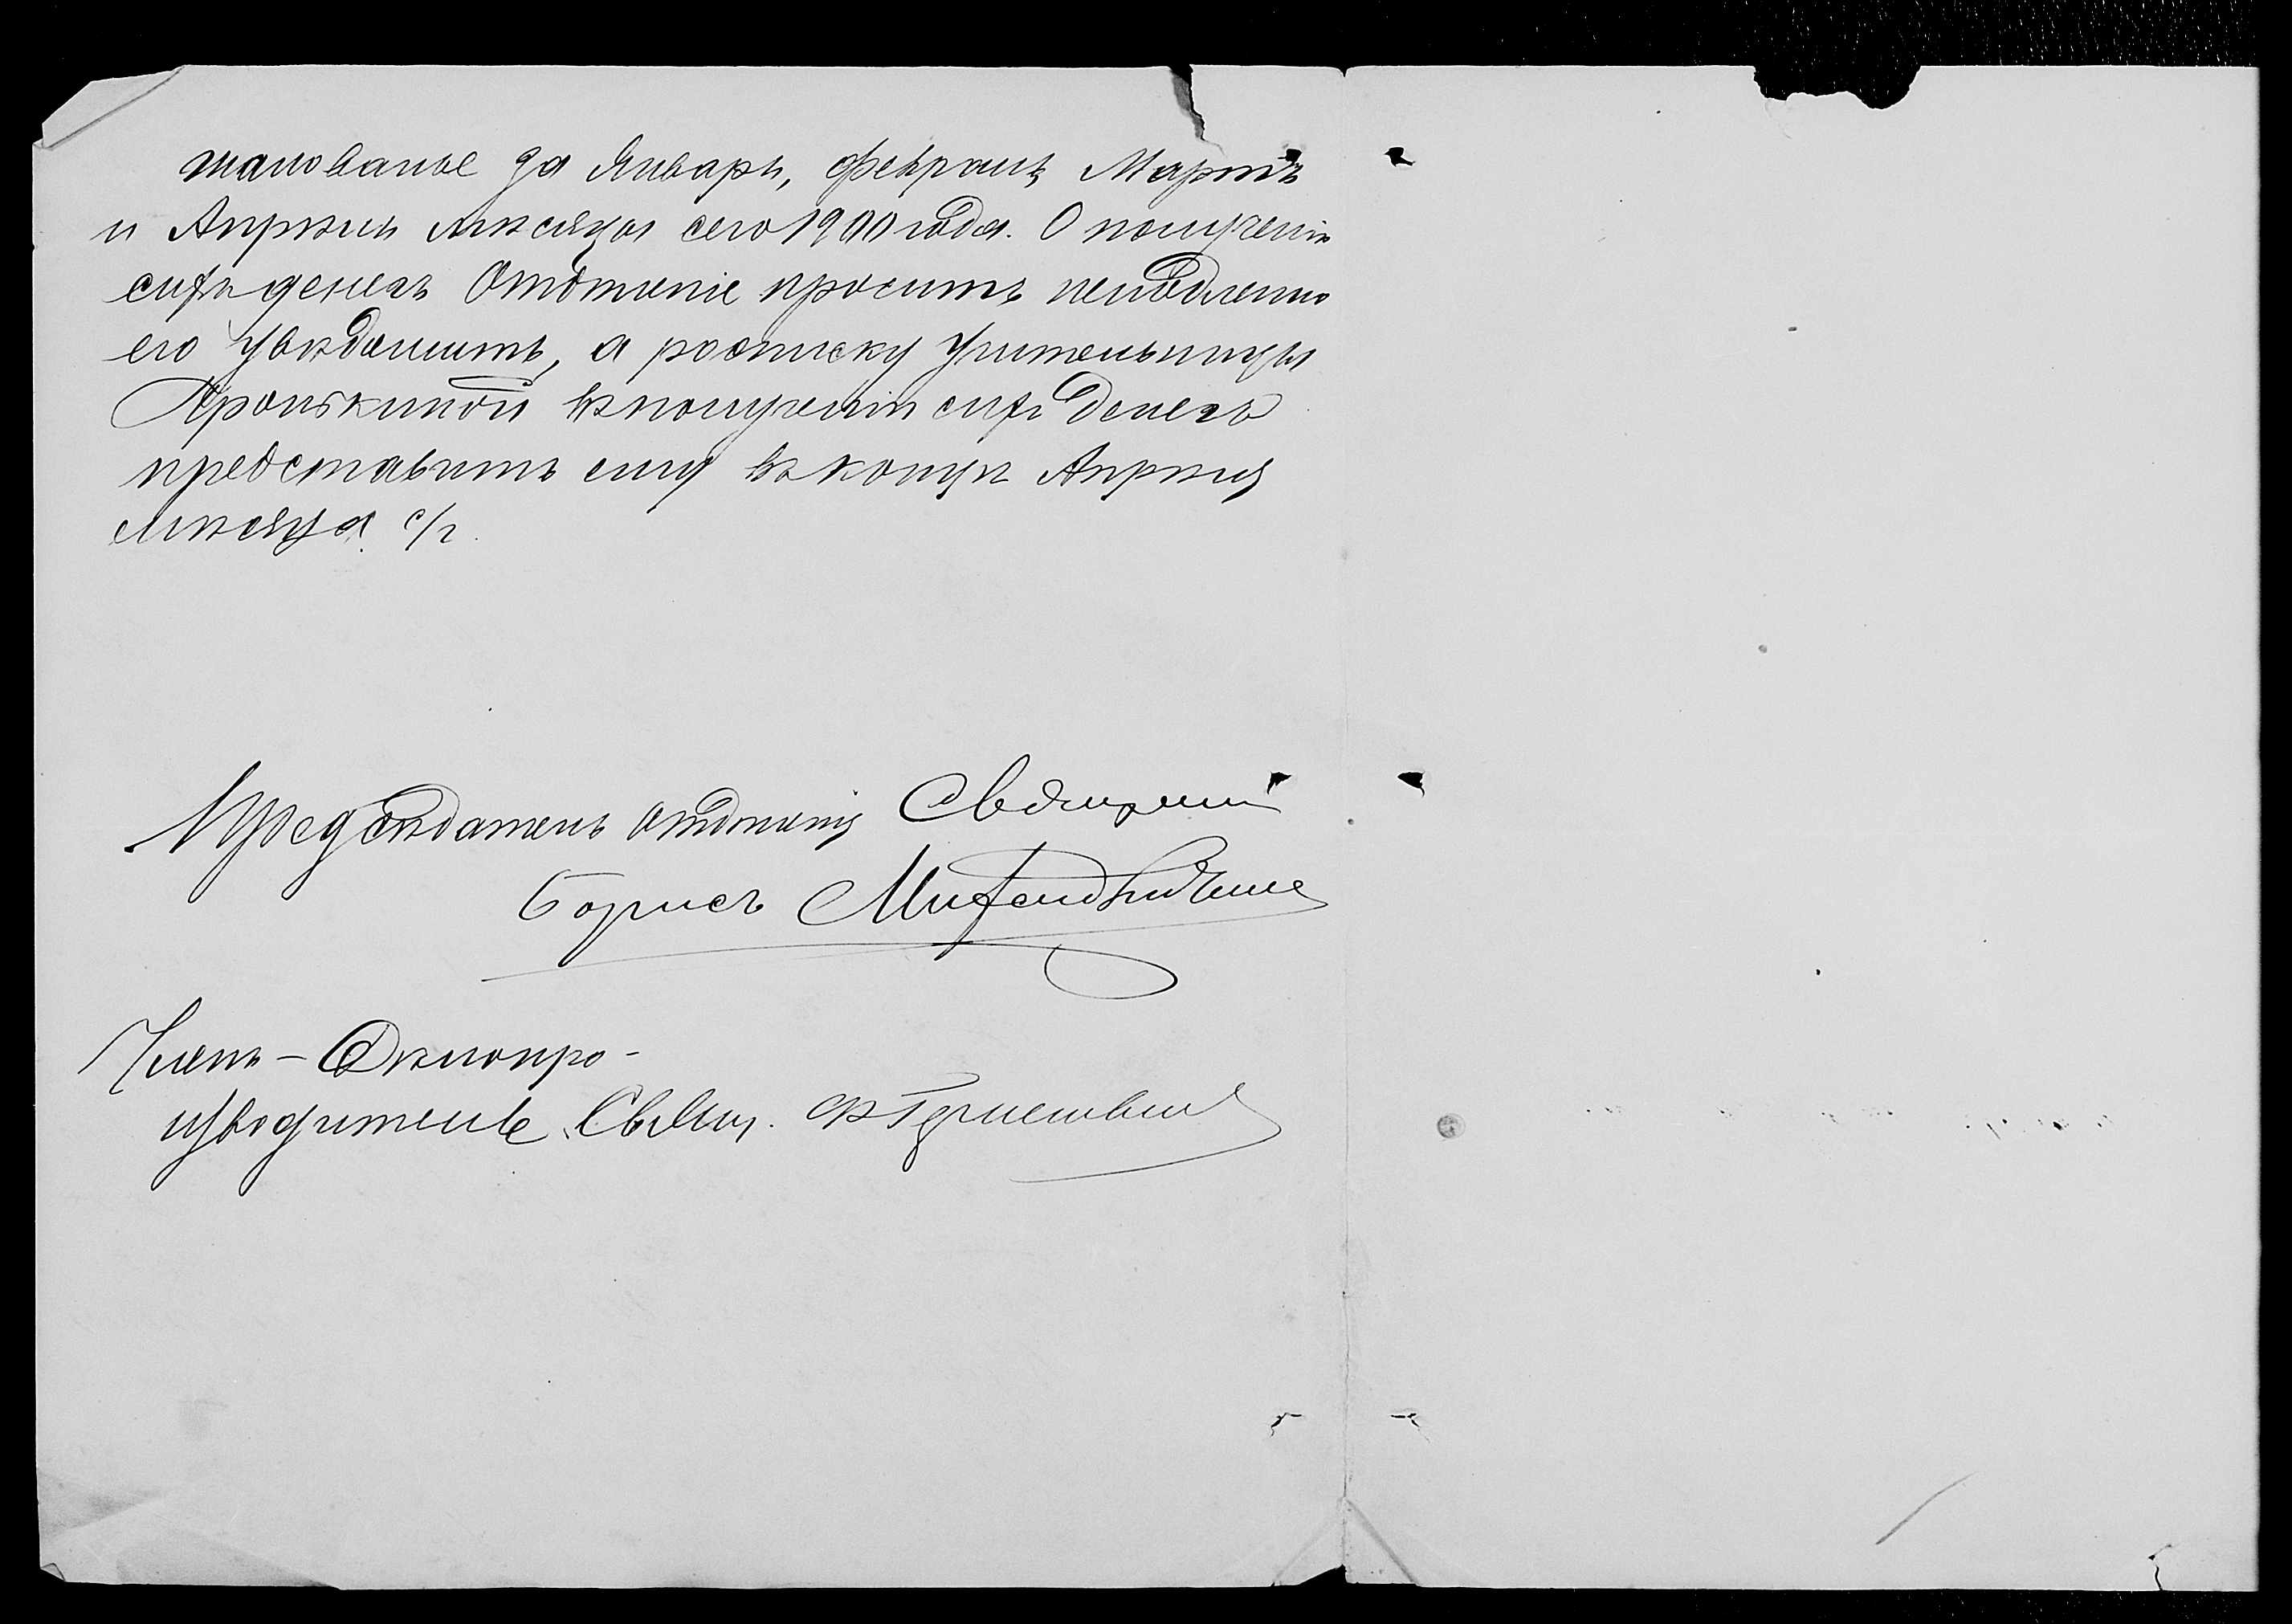 жалованье за Январь, февраль, Мартъ
и Апрѣль мѣсяцы сего 1900 года. О полученіи
сихъ денегъ Отдѣленіе проситъ немедленно
его увѣдомить, а росписку учительницы
въ полученіи сихъ денегъ
представить ему въ концѣ Апрѣля
мѣсяца с/г.
Предсѣдатель Отдѣленія Священникъ
Борисъ
Членъ-Дѣлопро-
изводитель Свящ.